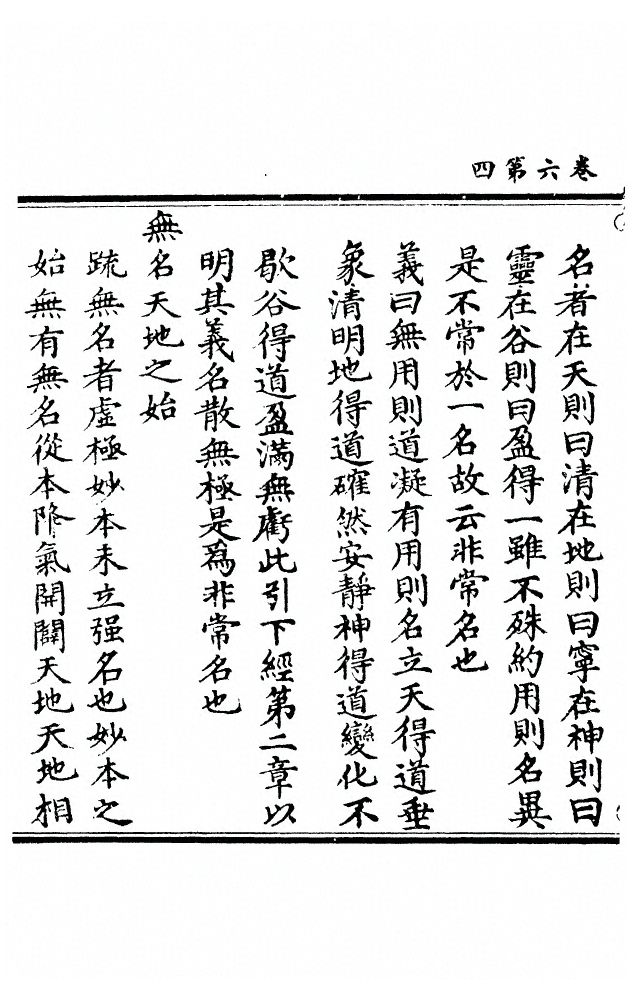 卷六第四
名著在天則曰清在地則曰寧在神則曰
靈在谷則曰盈得一雖不殊約用則名異
是不常於一名故云非常名也
義曰無用則道凝有用則名立天得道垂
象清明地得道確然安靜神得道變化不
歇谷得道盈滿無虧此引下經第二章以
明其義名散無極是爲非常名也
無名天地之始
䟽無名者虛極妙本未立强名也妙本之
始無有無名從本降氣開闢天地天地相